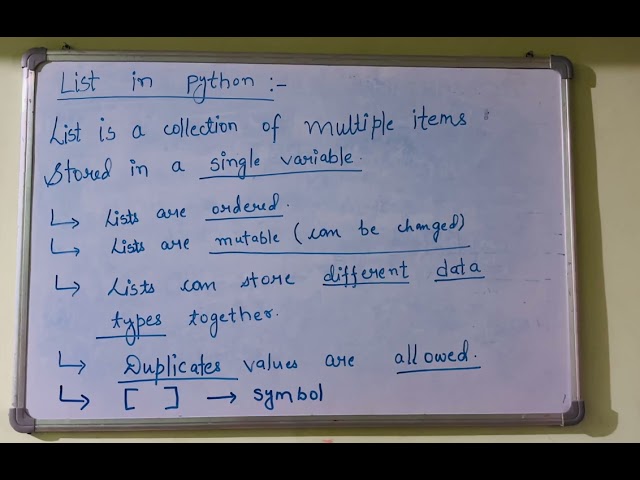 List in python :-
List is a collection of multiple items
Stored in a single variable.
↳ Lists are ordered.
↳ Lists are mutable (can be changed)
↳ Lists can store different data
types together.
↳ Duplicates values are allowed.
↳ [ ] → symbol